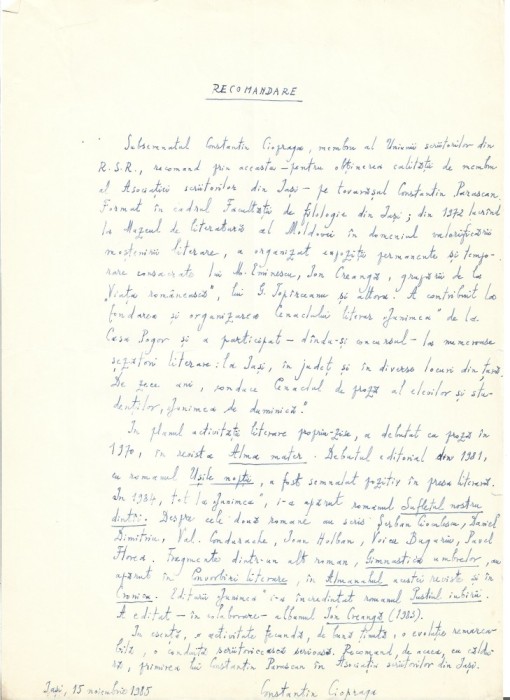 RECOMANDARE
Subsemnatul Constantin Ciopraga, membru al Uniunii scriitorilor din
R.S.R., recomand prin aceasta – pentru obținerea calității de membru
al Asociației scriitorilor din Iași – pe tovarășul Constantin Parascan.
Format în cadrul Facultății de filologie din Iași; din 1972 lucrînd
la Muzeul de literatură al Moldovei în domeniul valorificării
moștenirii literare, a organizat expoziții permanente și tempo-
rare consacrate lui M. Eminescu, Ion Creangă, grupării de la
„Viața românească”, lui G. Topîrceanu și altora. A contribuit la
fondarea și organizarea Cenaclului literar „Junimea” de la
Casa Pogor și a participat – dîndu-și concursul – la numeroase
șezători literare: la Iași, în județ și în diverse locuri din țară.
De zece ani, conduce Cenaclul de proză al elevilor și stu-
denților, „Junimea de duminică”.
In planul activității literare propriu-zise, a debutat cu proză în
1970, în revista Alma mater. Debutul editorial din 1981,
cu romanul Ușile nopții, a fost semnalat pozitiv în presa literară.
In 1984, tot la „Junimea”, i-a apărut romanul Sufletul nostru
dintîi. Despre cele două romane au scris Șerban Cioculescu, Daniel
Dimitriu, Val. Condurache, Ioan Holban, Voicu Bugariu, Pavel
Florea. Fragmente dintr-un alt roman, Gimnastica umbrelor, au
apărut în Convorbiri literare, în Almanahul acestei reviste și în
Cronica. Editurii „Junimea” i-a încredințat romanul Pustiul iubirii.
A editat – în colaborare – albumul Ion Creangă (1985).
In esență, o activitate fecundă, de bună ținută, o evoluție remarca-
bilă, o conduită scriitoricească serioasă. Recomand, de aceea, cu căldu-
ră, primirea lui Constantin Parascan în Asociația scriitorilor din Iași.
Iași, 15 noiembrie 1985 Constantin Ciopraga